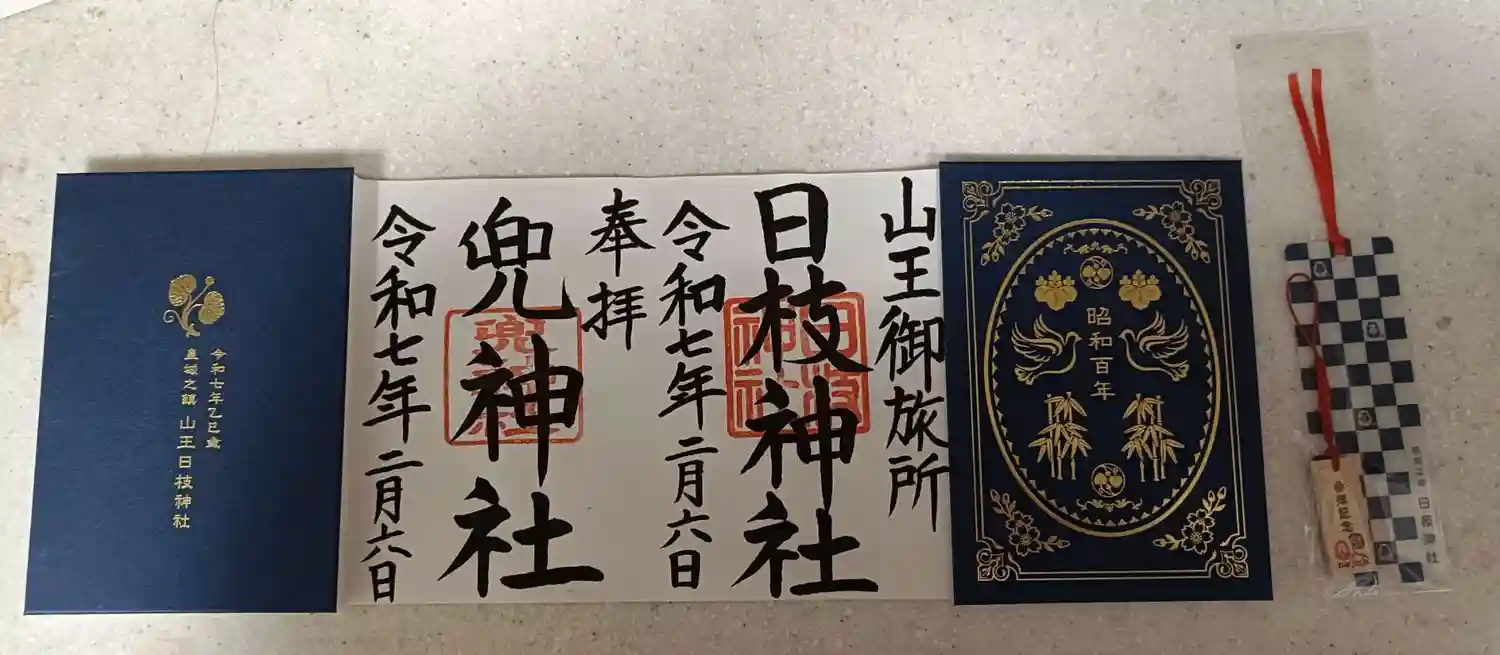 山王御旅所
日枝神社
令和七年二月六日
奉拝
兜神社
令和七年二月六日
昭和百年
令和七年乙巳歳
皇城之鎮 山王日枝神社
日枝神社
兜神社
参拝記念
日枝神社